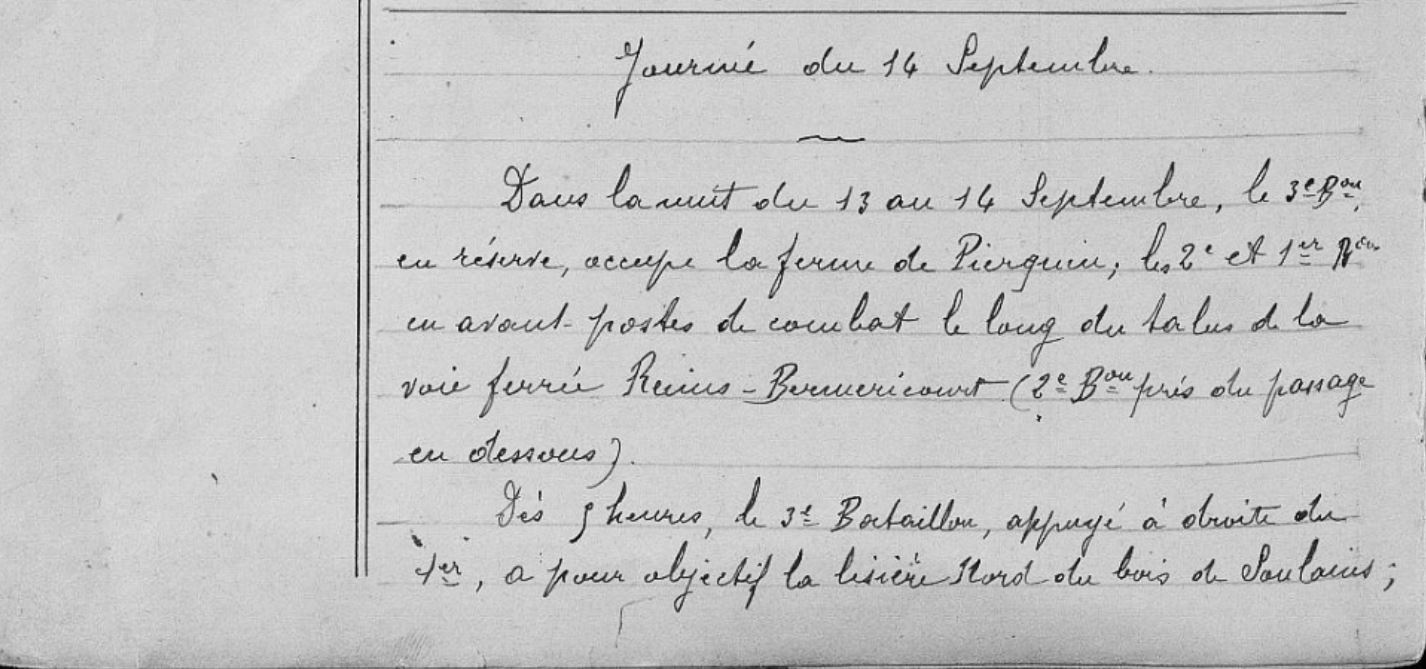 Journée du 14 Septembre.
Dans la nuit du 13 au 14 Septembre, le 3e Bon,
en réserve, occupe la ferme de Pierquin, les 2e et 1er Bon
en avant-postes de combat le long du talus de la
voie ferrée Reims - Bermericourt (2e Bon près du passage
en dessous).
Dès 5 heures, le 3e Bataillon, appuyé à droite du
1er, a pour objectif la lisière Nord du bois de Soulains ;